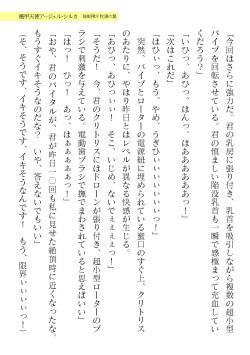 「今回はさらに強力だ。君の乳房に張り付き、乳首を吸引しながら複数の超小型
バイブを回転させている。君の慎ましい陥没乳首も一瞬で感極まって充血してい
くだろう?」
「あひっ、あひっっ、はんっ、はあああああっっ!
次はこれだ」
「はひぃっ、もう、やめ、うぎひぃぃぃぃぃぃっっ!」
突然、バイブとローターの電源紐に埋められている密口のすぐ上、クリトリス
のあたりに、やはり昨日とはレベルが異なる快感が生じる。
「あひっ、あひぃぃっ! そこ、いじめ、ないでぇぇぇぇっ!」
「そうだ! 今、君のクリトリスにはドローンが張り付き、超小型ローターのブ
ラシで刺激を与えている。電動歯ブラシで撫でまわされていると思えばいい」
「はっ! ひっ! あっ、あっ、はぁぁぁぁっ!」
「おや、君のバイタルが、君が昨日一〇回も私に見せた絶頂時に近くなったな。
もうすぐイキそうなのだな? いや、答えないでもいい」
(そ、そうです、イキそう、イキそうなんです! もう、限界ぃぃぃぃぃっ!)